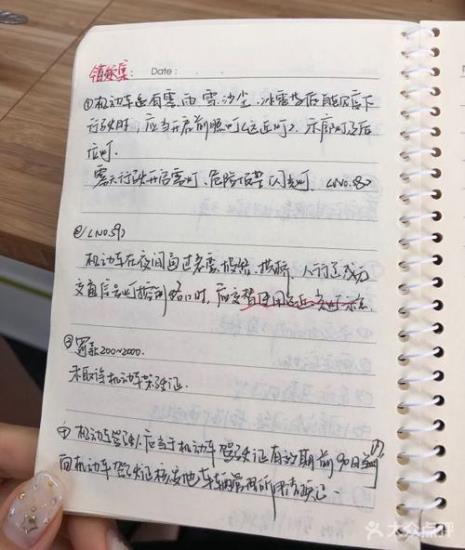 错题集: Date:
①机动车遇有雾、雨、雪、沙尘、冰雹等低能见度下
行驶时,应当开启前照灯(远近灯)、示廓灯及后
位灯.
雾天行驶开启雾灯、危险报警闪光灯. (No.8)
②(No.59)
机动车在夜间通过急弯、坡路、拱桥、人行道或无
交通信号灯控制路口时,应交替使用远近光灯示意.
③罚款200~2000.
未取得机动车驾驶证.
④机动车驾驶人应当于机动车驾驶证有效期前90日内
向机动车驾驶证核发地车辆管理所申请换证.
大众点评